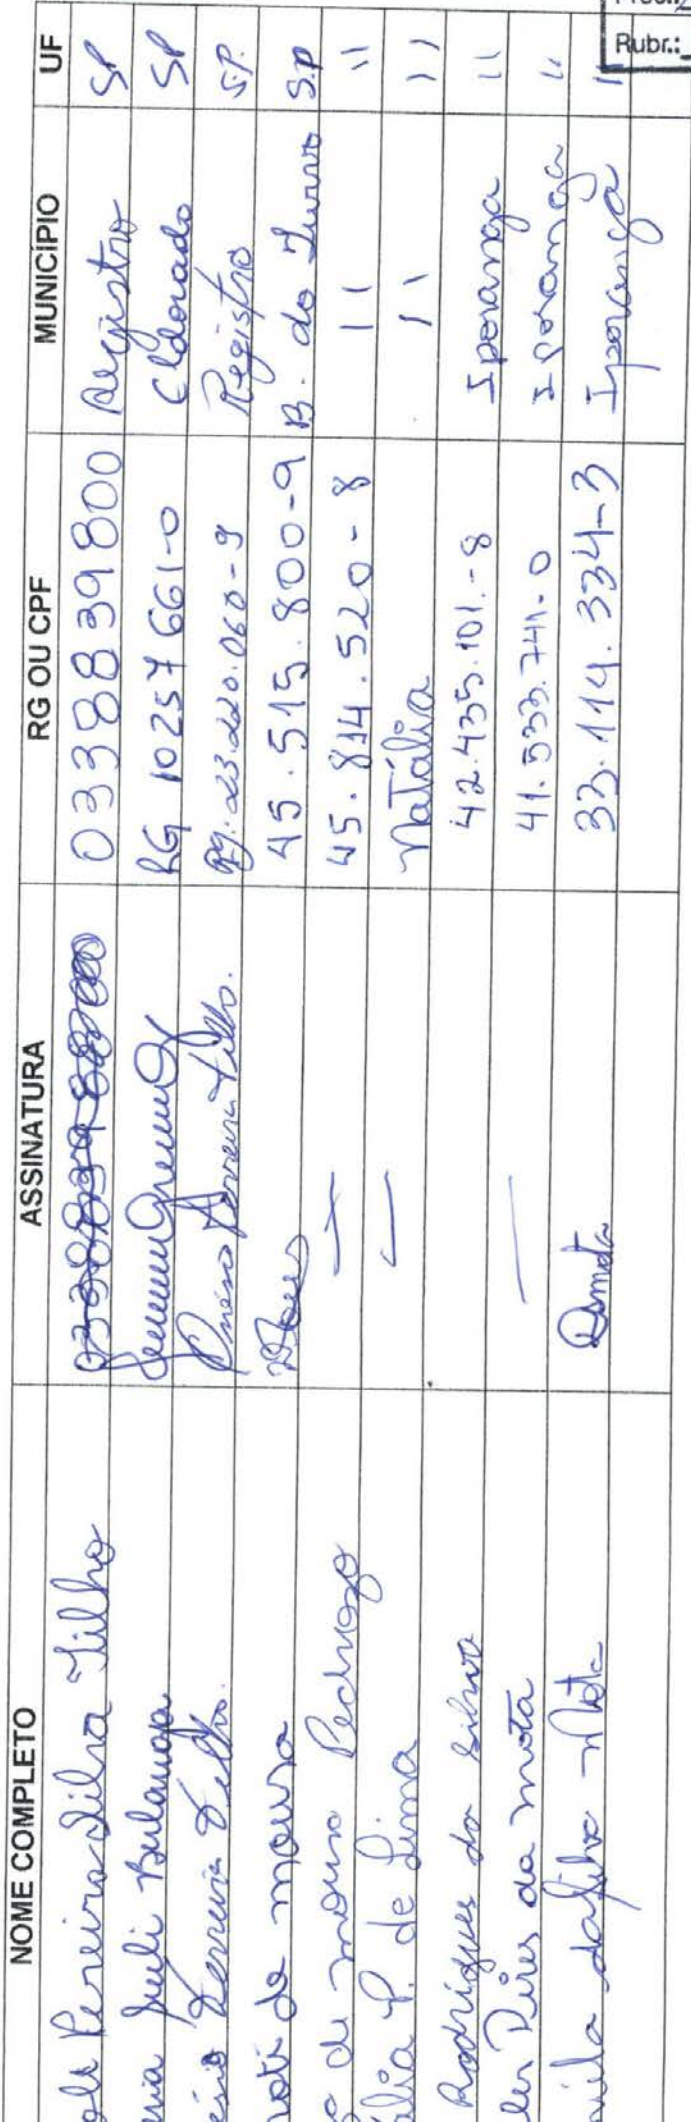 NOME COMPLETO ASSINATURA RG OU CPF MUNICÍPIO UF
Pereira Silva Filho 03388398 03388839800 Registro SP
RG 10257661-0 Eldorado SP
Ferreira Filho. Ferreira Filho. rg: 23.220.060-9 Registro S.P.
de moura 45.515.800-9 B. do Turvo S.P
de moura Pedrozo — 45.814.520-8 11 11
ália P. de Lima — Natália 11 11
Rodrigues da Silva 42.435.101.-8 Iporanga 11
Pires da mota — 41.533.741-0 Iporanga 11
da Silva Mota Dmota 33.114.334-3 Iporanga 11
Rubr.: